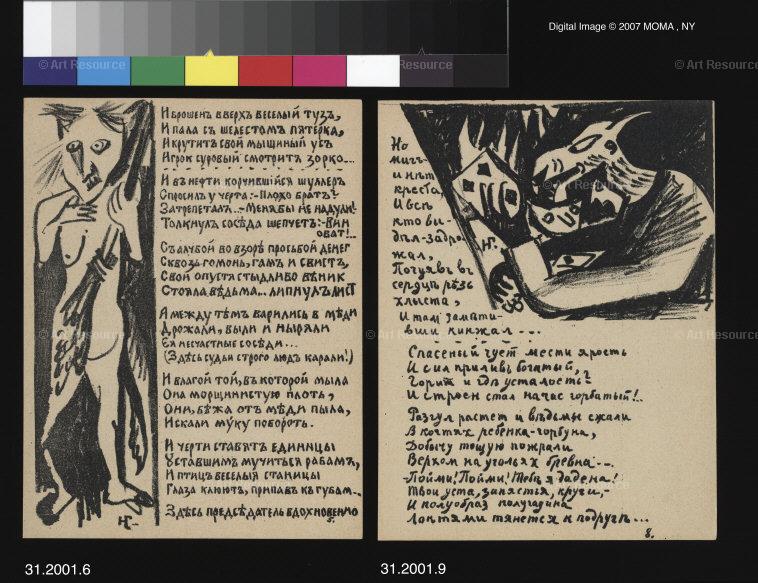 Digital Image © 2007 MOMA , NY
© Art Resource
© Art Resource
© Art Resource
И брошен вверх веселый тузъ,
И пала съ шелестомъ пятерка,
И крутитъ свой мышиный усъ
Игрок суровый смотритъ зорко...
И въ нефти корчившійся шуллеръ
Спросилъ у черта: -Плохо братъ?
Затрепеталъ.. -Меня бы не надули!
Толкнулъ соседа шепчетъ: -Вин
оват!..
Съ алчбой во взорѣ просьбой денег
Сквозь гомонь, гамъ и свистъ,
Свой опустя стыдливо вѣник
Стояла вѣдьма... липнулъ лист
А между тѣмъ варились в мѣди
Дрожали, выли и ныряли
Ея несчастные сосѣди...
(Здѣсь судьи строго людъ карали!)
И влагой той, въ которой мыла
Она морщинистую плоть,
Они, бѣжа отъ мѣди пыла,
Искали муку побороть.
И черти ставятъ единицы
Уставшимъ мучиться рабамъ,
И птицъ веселыя станицы
Глаза клюютъ, припавъ къ губам...
Здѣсь предсѣдатель вдохновенно
5.
НГ-
Но
мигъ-
и нѣт
креста,
И всѣ
кто ви-
дѣл-задро-
жал,
Почуявъ въ
сердцѣ рѣзь
хлыста,
И там замѣти-
вши кинжал ---
Спасеный чует мести ярость
И сил приливъ богатый,
Горит и гдѣ усталость?
И строен стал на час горбатый!..
Разгул растет и вѣдьмы сжали
В когтях ребенка-горбуна,
Добычу тощую пожрали
Верхом на угольях бревна---
-Пойми! Пойми! Тебѣ я дадена!
Твои уста, запястья, круги,-
И полуобраз полугадина
Локтями тянется к подругѣ...
8.
НГ-
31.2001.6
31.2001.9